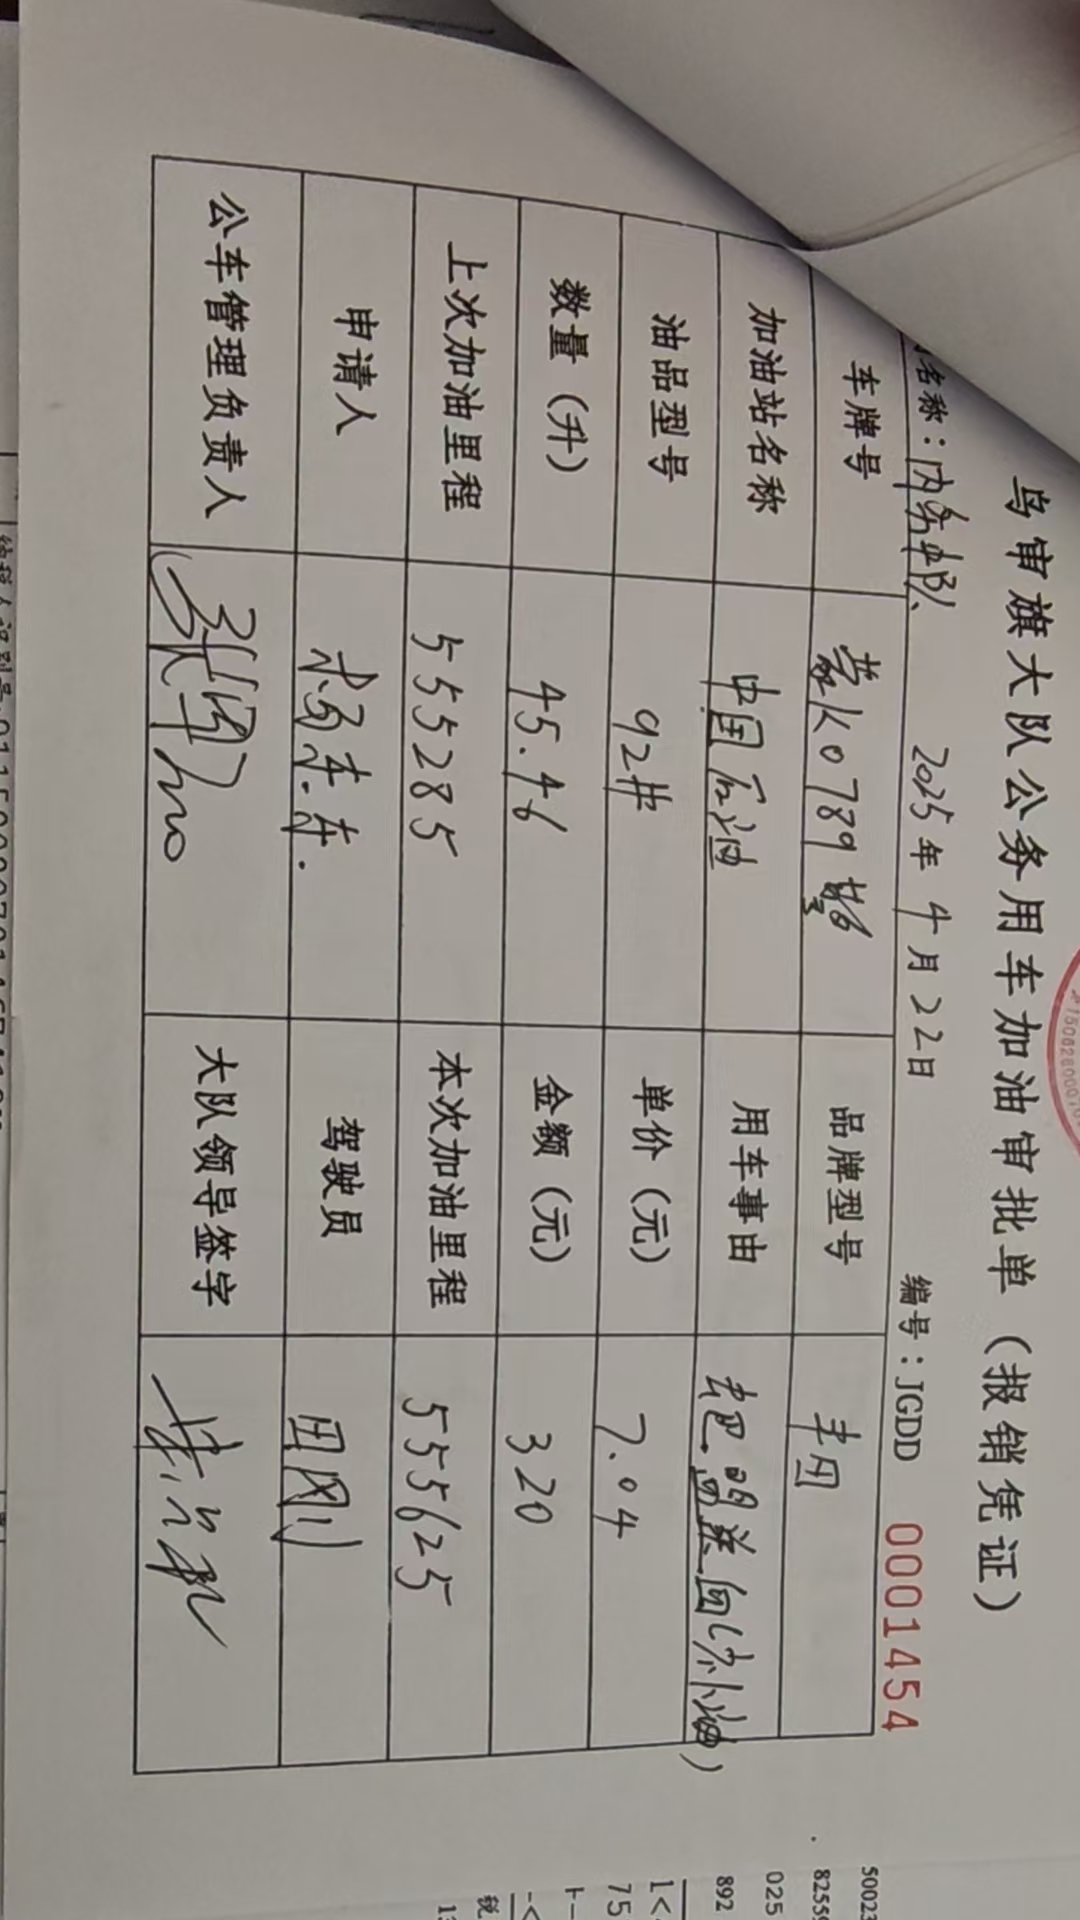 乌审旗大队公务用车加油审批单（报销凭证）
名称：内务中队 2025年4月22日 编号：JGDD 0001454
车牌号 蒙K0789警 品牌型号 丰田
加油站名称 中国石油 用车事由 去巴盟送血(补油)
油品型号 92# 单价（元） 7.04
数量（升） 45.46 金额（元） 320
上次加油里程 555285 本次加油里程 555625
申请人 驾驶员 田刚
公车管理负责人 大队领导签字
5002
8255
025
892
75
税